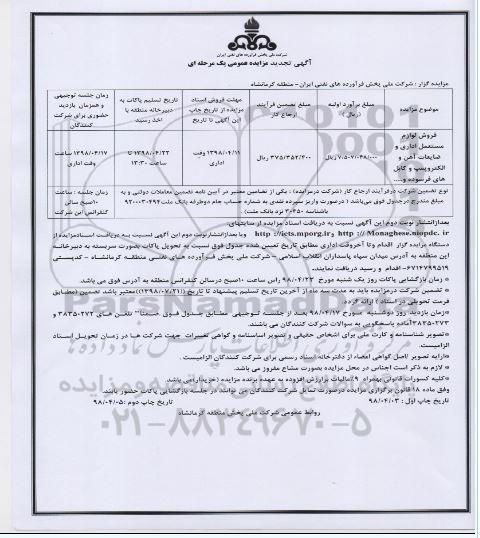 شرکت ملی پخش فرآورده های نفتی ایران
آگهی تجدید مزایده عمومی یک مرحله ای
مزایده گزار : شرکت ملی پخش فرآورده های نفتی ایران- منطقه کرمانشاه
موضوع مزایده
مبلغ برآورد اولیه (ریال)
مبلغ تضمین فرآیند ارجاع کار
مهلت فروش اسناد مزایده از تاریخ چاپ این آگهی تا تاریخ
تاریخ تسلیم پاکات به دبیرخانه منطقه با اخذ رسید
زمان جلسه توجیهی و همزمان بازدید حضوری برای شرکت کنندگان
فروش لوازم مستعمل اداری و ضایعات آهن و الکتروپمپ و کابل های فرسوده و....
۷/۵۰۷/۰۴۸/۰۰۰ ریال
۳۷۵/۳۵۲/۴۰۰ ریال
۱۳۹۸/۰۴/۱۱ وقت اداری
۱۳۹۸/۰۴/۲۲ تا ساعت ۱۳:۳۰
۱۳۹۸/۰۴/۱۷ ساعت وقت اداری
نوع تضمین شرکت درفرآیند ارجاع کار (شرکت درمزایده) : یکی از تضامین معتبر در آیین نامه تضمین معاملات دولتی و به
مبلغ مندرج درجدول فوق می‌باشد ( درصورت واریز سپرده نقدی به شماره حساب جام دوطرفه بانک ملت
باشناسه ۳۰۴۵۰ نزد بانک ملت)
زمان جلسه : ساعت ۱۰صبح سالن کنفرانس این شرکت
بعدازانتشار نوبت دوم این آگهی نسبت به دریافت اسناد مزایده از سایتهای.
http:// Monaghese.niopdc. ir و http://iets.mporg.ir ویا بعدازانتشارنوبت دوم این آگهی نسبت به دریافت اسنادمزایده از
دستگاه مزایده گزار اقدام وتا آخروقت اداری مطابق تاریخ تعیین شده جدول فوق نسبت به تحویل پاکات بصورت سربسته به دبیرخانه
این منطقه به آدرس میدان سپاه پاسداران انقلاب اسلامی – شرکت ملی پخش فرآورده های نفتی منطقه کرمانشاه - کدپستی
۶۷۱۴۶۷۹۹۵۱۹- اقدام و رسید دریافت نمایند.
» زمان بازگشایی پاکات روز یک شنبه مورخ ۹۸/۰۴/۲۳ راس ساعت ۱۰صبح درسالن کنفرانس منطقه به آدرس فوق می باشد.
» تضمین شرکت درمزایده باید به مدت سه ماه از آخرین تاریخ تسلیم پیشنهاد تا تاریخ ((۱۳۹۸/۰۷/۲۱))معتبر باشد تضمین (مطابق
فرمت تحویلی در اسناد ) ارائه گردد.
»زمان بازدید: روز دوشنبه مورخ ۹۸/۰۴/۱۷ بعد از جلسه توجیهی مطابق جدول فوق ضمنا تلفن های ۳۸۳۵۰۲۷۲ و
۳۸۳۵۰۲۷۳آماده پاسخگویی به سوالات شرکت کنندگان می باشند.
»تصویر شناسنامه و کارت ملی برای اشخاص حقیقی و تصویر اساسنامه و گواهی تغییرات جهت شرکت ها در زمان تحویل اسناد
الزامیست.
»ارایه تصویر اصل گواهی امضاء از دفترخانه اسناد رسمی برای شرکت کنندگان الزامیست .
» لازم به ذکر است اجناس در محل مزایده بصورت مشاع مفروز می باشد.
»کلیه کسورات قانونی بهمراه ۹٪مالیات برارزش افزوده به عهده برنده مزایده (خریدار)می باشد
وفق ماده ۱۸ قانون برگزاری مزایده درصورت تمایل شرکت کنندگان می توانند در جلسه بازگشایی پاکات حضور یابند.
تاریخ چاپ اول : ۹۸/۰۴/۰۳ تاریخ چاپ دوم : ۹۸/۰۴/۰۵
روابط عمومی شرکت ملی پخش منطقه کرمانشاه
۰۲۱-۸۸۳۴۹۶۷۰-۵